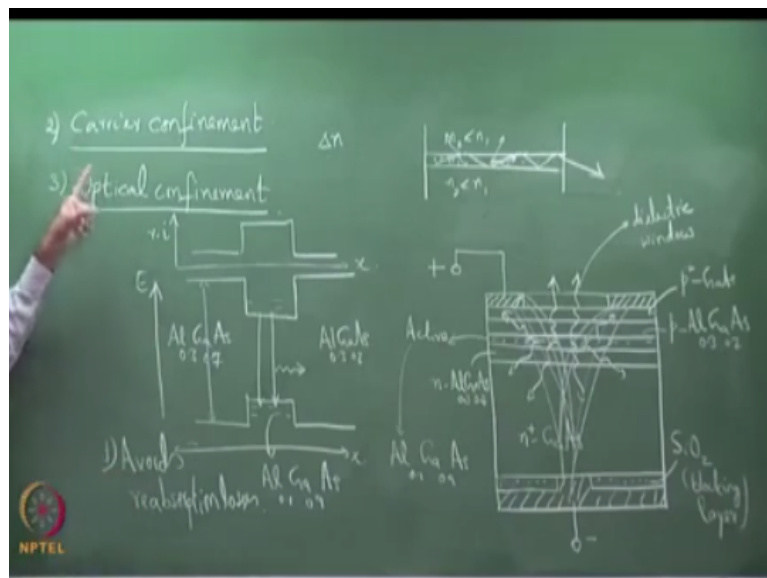 2) Carrier confinement
Δn
3) Optical confinement
n₂ < n₁
n₂ < n₁
r.i
x
E
Al Ga As
0.3 0.7
Al Ga As
0.3 0.7
1) Avoids
reabsorption losses
Al Ga As
0.1 0.9
x
dielectric
window
+
p⁺-GaAs
p-AlGaAs
0.3 0.7
Active
n-AlGaAs
0.3 0.7
n⁺-GaAs
Al Ga As
0.1 0.9
SiO₂
(blocking
layer)
-
NPTEL